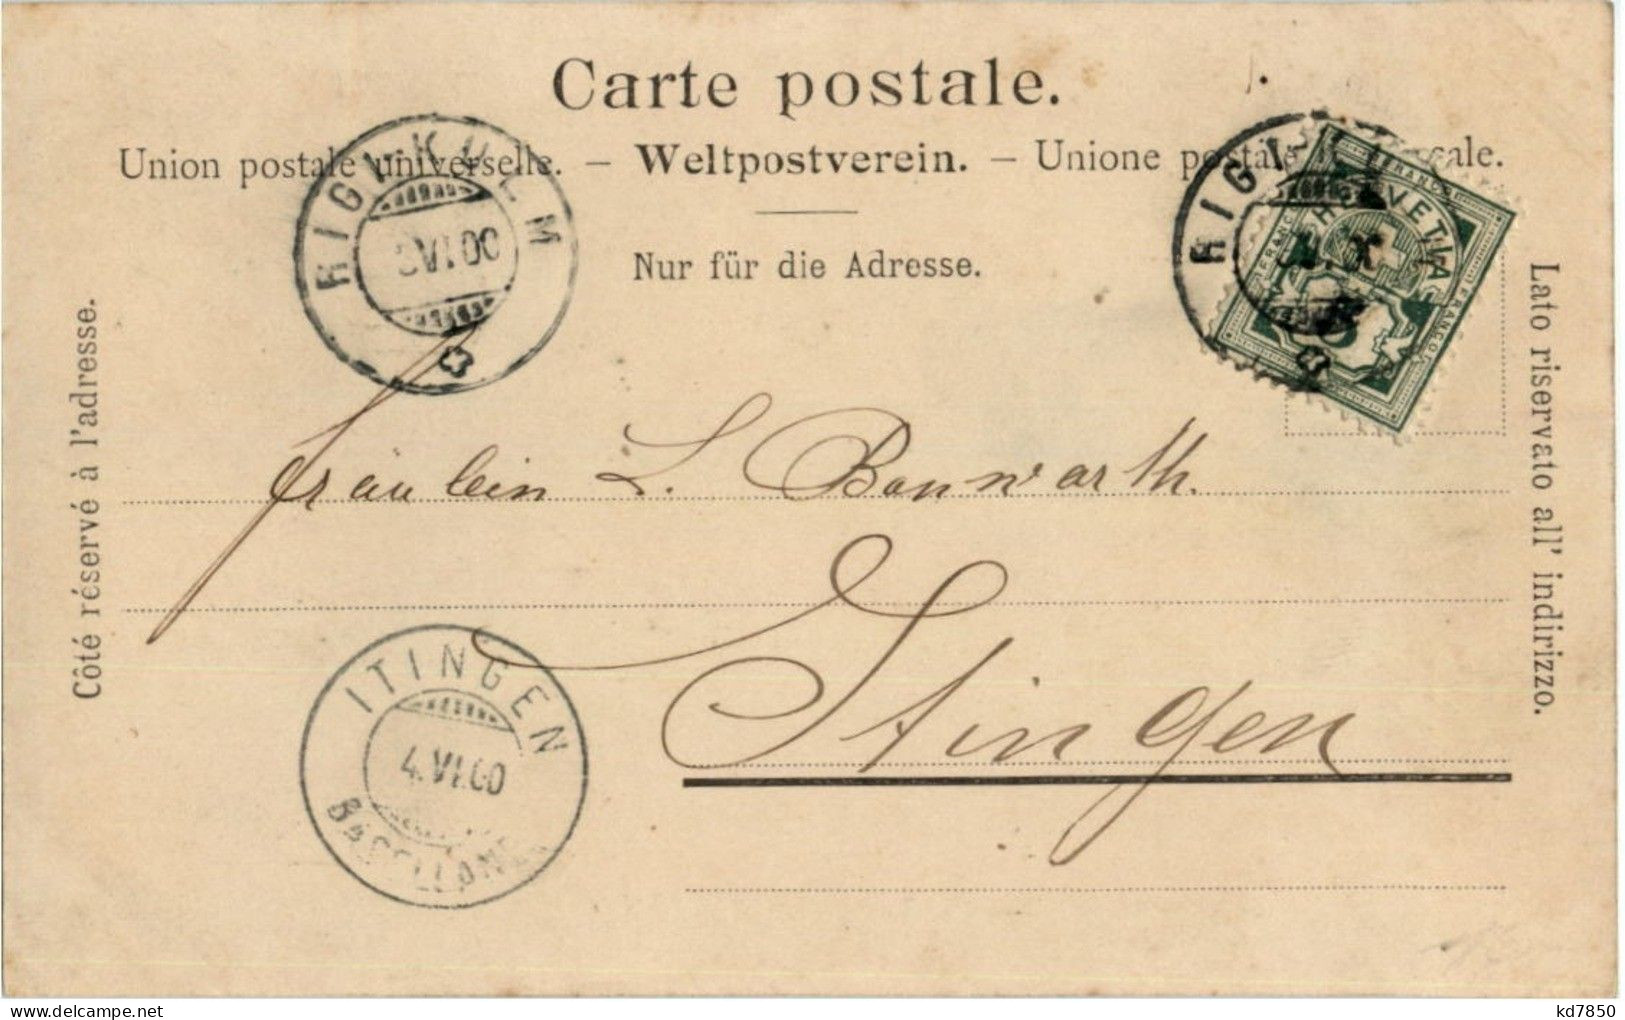 Carte postale.
Union postale universelle. – Weltpostverein. – Unione postale
Nur für die Adresse.
RIGI-KULM
VI.00
RIGI
HELVETIA
FRANCO
FRANCO
FRANCO
Côté réservé à l'adresse.
Lato riservato all' indirizzo.
Fräulein L. Banwarth.
Itingen
ITINGEN
4.VI.00
BASELLAND
delcampe.net
kd7850